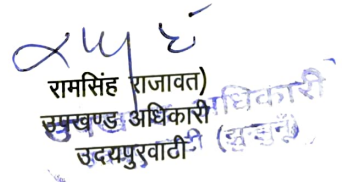 रामसिंह राजावत)
उपखण्ड अधिकारी
उदयपुरवाटी (झुन्झुनूं)